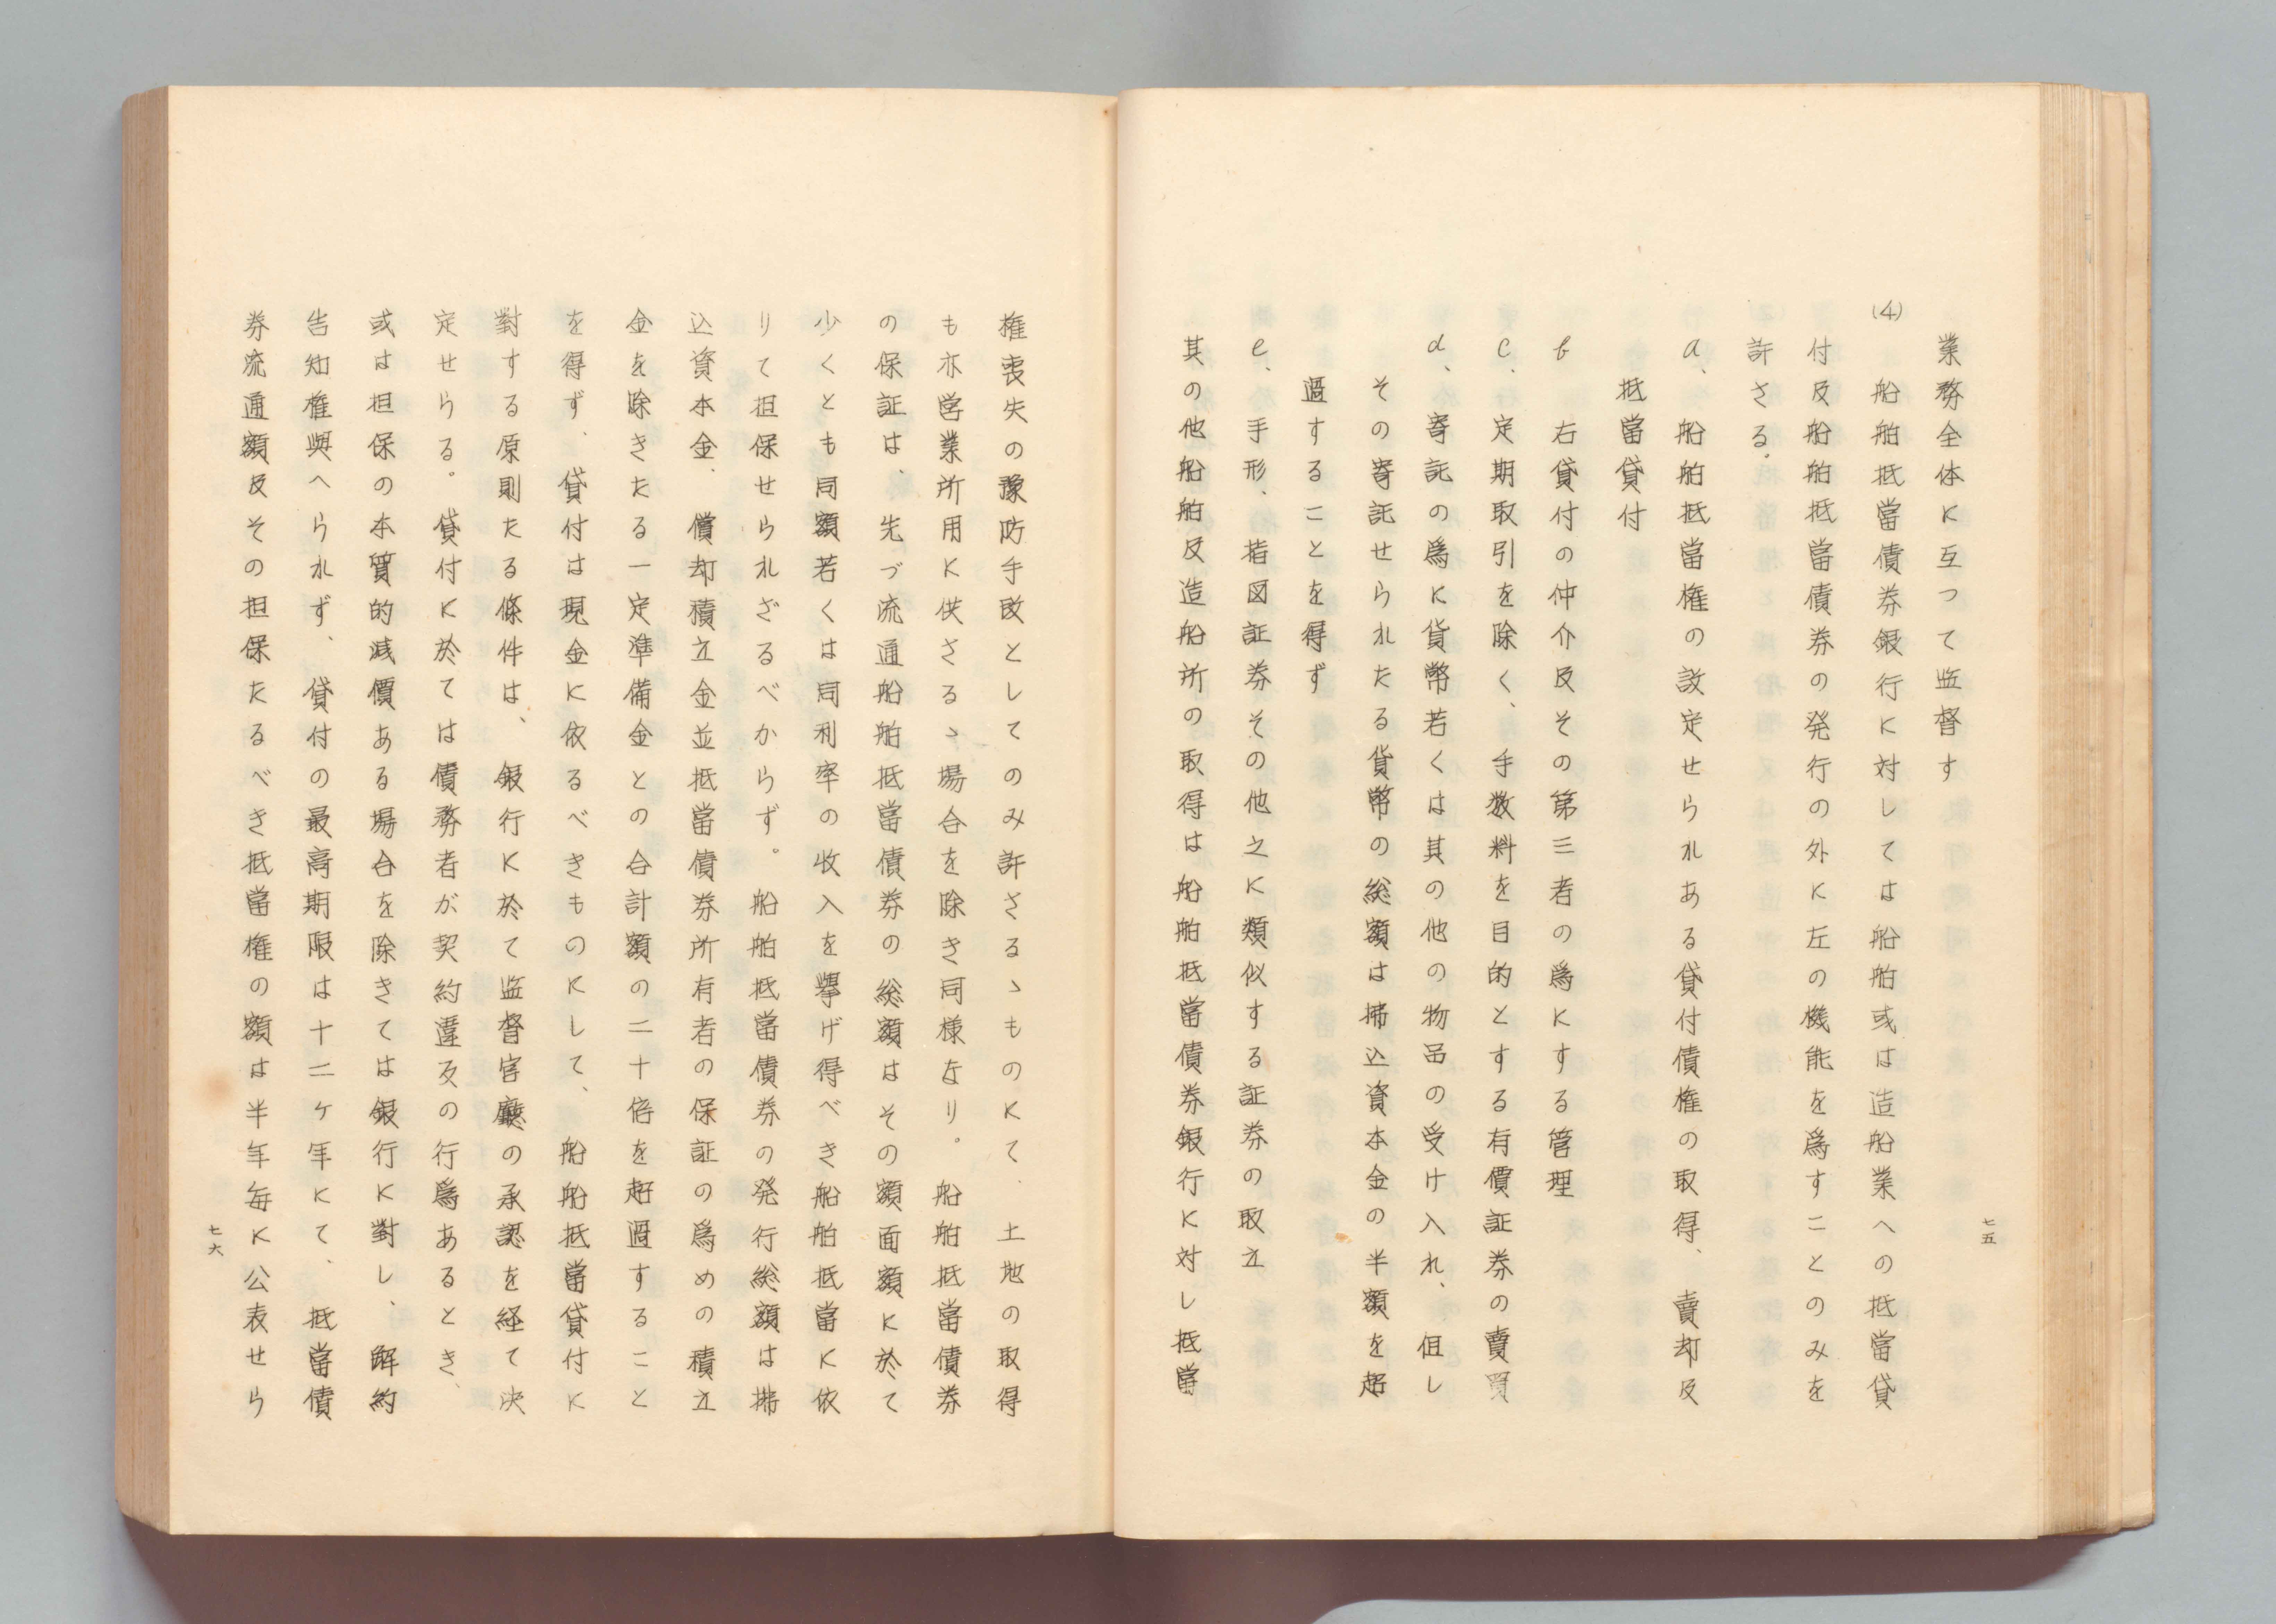 業務全体に亙つて監督す
(4) 船舶抵當債券銀行に対しては船舶或は造船業への抵當貸
付及船舶抵當債券の発行の外に左の機能を爲すことのみを
許さる。
a、船舶抵當権の設定せられある貸付債権の取得、賣却及
抵當貸付
b 右貸付の仲介及その第三者の爲にする管理
c、定期取引を除く、手数料を目的とする有價証券の賣買
d、寄託の爲に貨幣若くは其の他の物品の受け入れ、但し
その寄託せられたる貨幣の総額は拂込資本金の半額を超
過することを得ず
e、手形、指図証券その他之に類似する証券の取立
其の他船舶及造船所の取得は船舶抵當債券銀行に対し抵當
七五
権喪失の豫防手段としてのみ許さるゝものにて、土地の取得
も亦営業所用に供さるゝ場合を除き同様なり。船舶抵當債券
の保証は、先づ流通船舶抵當債券の総額はその額面額に於て
少くとも同額若くは同利率の收入を擧げ得べき船舶抵當に依
りて担保せられざるべからず。船舶抵當債券の発行総額は拂
込資本金、償却積立金並抵當債券所有者の保証の爲めの積立
金を除きたる一定準備金との合計額の二十倍を超過すること
を得ず、貸付は現金に依るべきものにして、船舶抵當貸付に
對する原則たる條件は、銀行に於て監督官廰の承認を経て決
定せらる。貸付に於ては債務者が契約違反の行爲あるとき、
或は担保の本質的減價ある場合を除きては銀行に對し、解約
告知権與へられず、貸付の最高期限は十二ケ年にて、抵當債
券流通額及その担保たるべき抵當権の額は半年毎に公表せら
七六